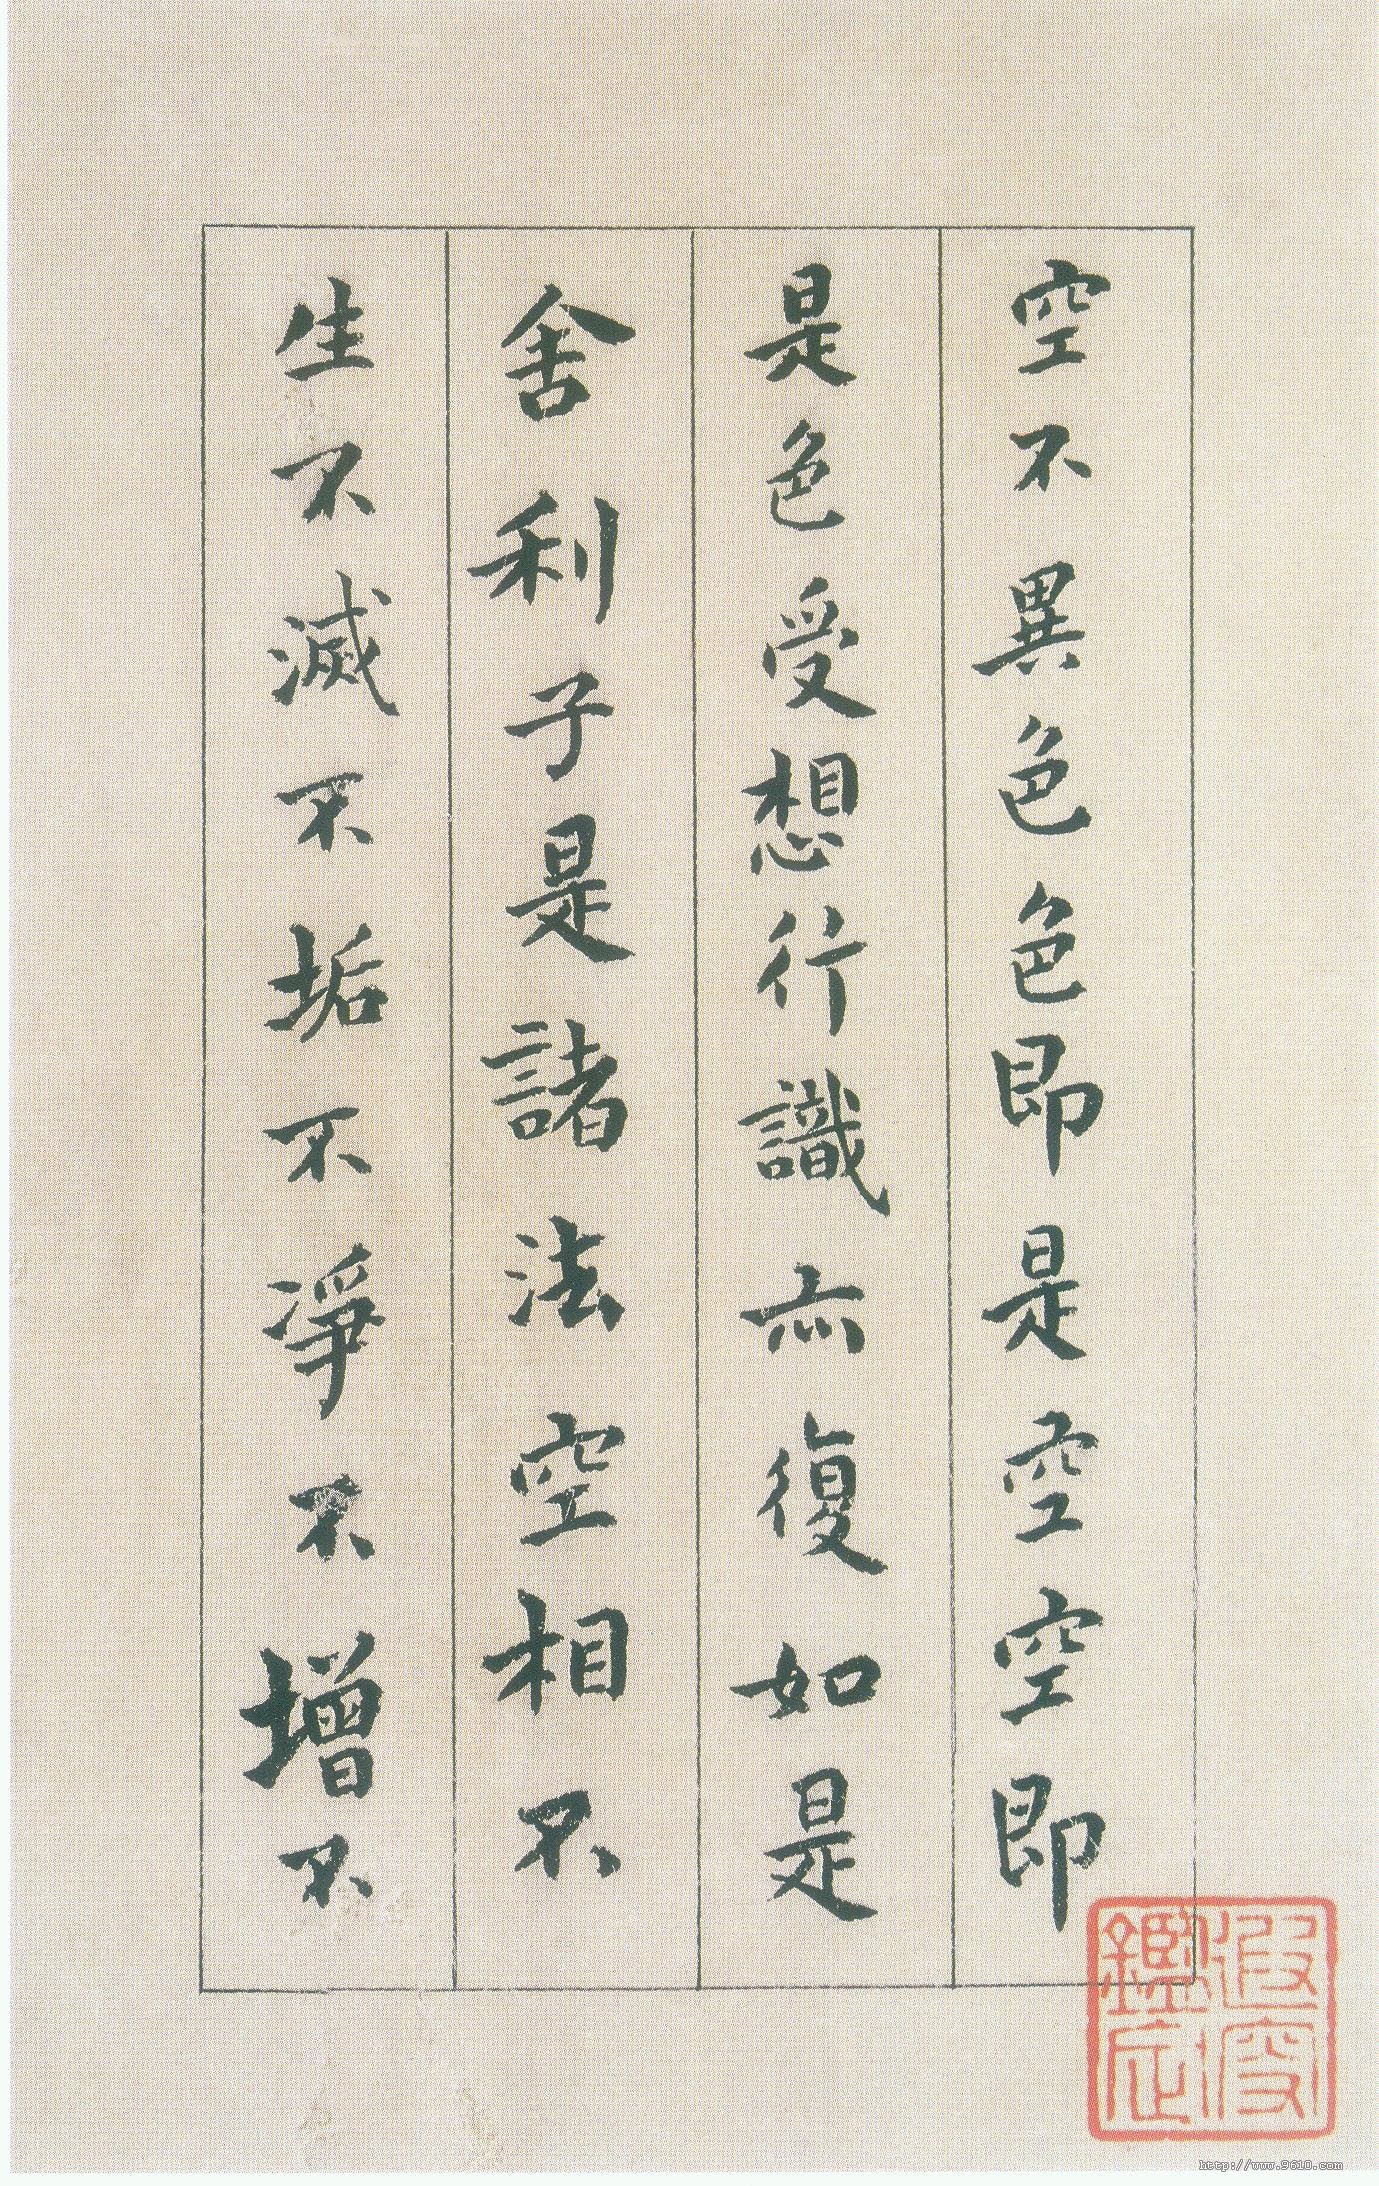 空不異色色即是空空即
是色受想行識亦復如是
舍利子是諸法空相不
生不滅不垢不淨不增不
http://www.9610.com